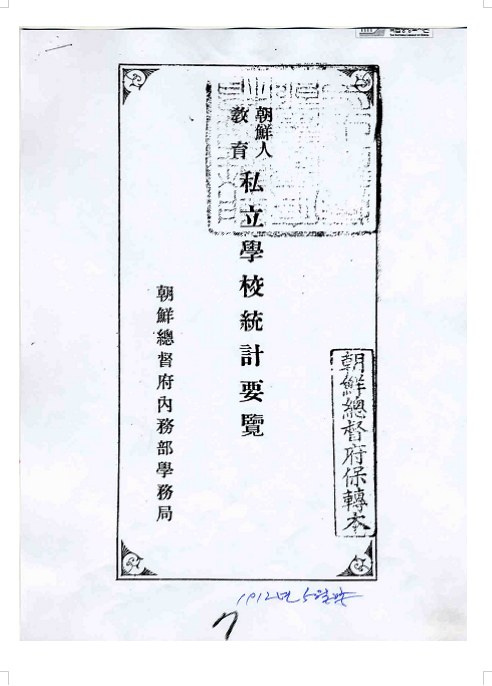 朝鮮人
教育
私立學校統計要覽
朝鮮總督府內務部學務局
朝鮮總督府保轉本
1912년 5월
7